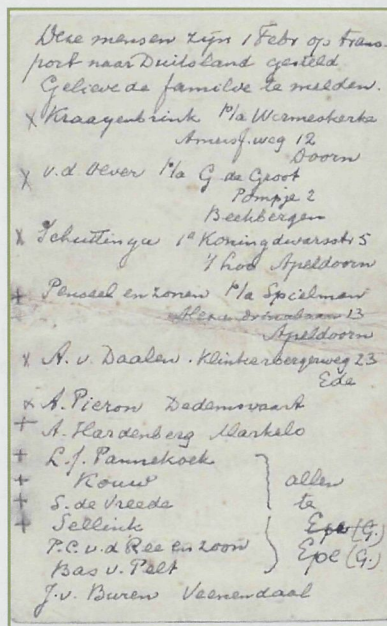 Deze mensen zijn 1 Febr op trans-
port naar Duitsland gesteld
Gelieve de familie te melden.
x Kraayenbrink p/a Wermeskerke
Amersf.weg 12
Doorn
x v.d. Oever p/a G de Groot
Pompje 2
Beekbergen
x Schuttinga 1e Koningdwarsstr 5
't hoo Apeldoorn
+ Penseel en zonen p/a Spielman
13
Apeldoorn
x A. v. Daalen. Klinkerbergerweg 23
Ede
x A. Pieron Dedemsvaart
+ A. Hardenberg Markelo
+ L.J. Pannekoek
+ Kouw allen
+ S. de Vreede te
+ Sellink Epe (G.)
P.C. v.d. Ree en zoon Epe (G.)
Bas v. Pelt
J. v. Buren Veenendaal